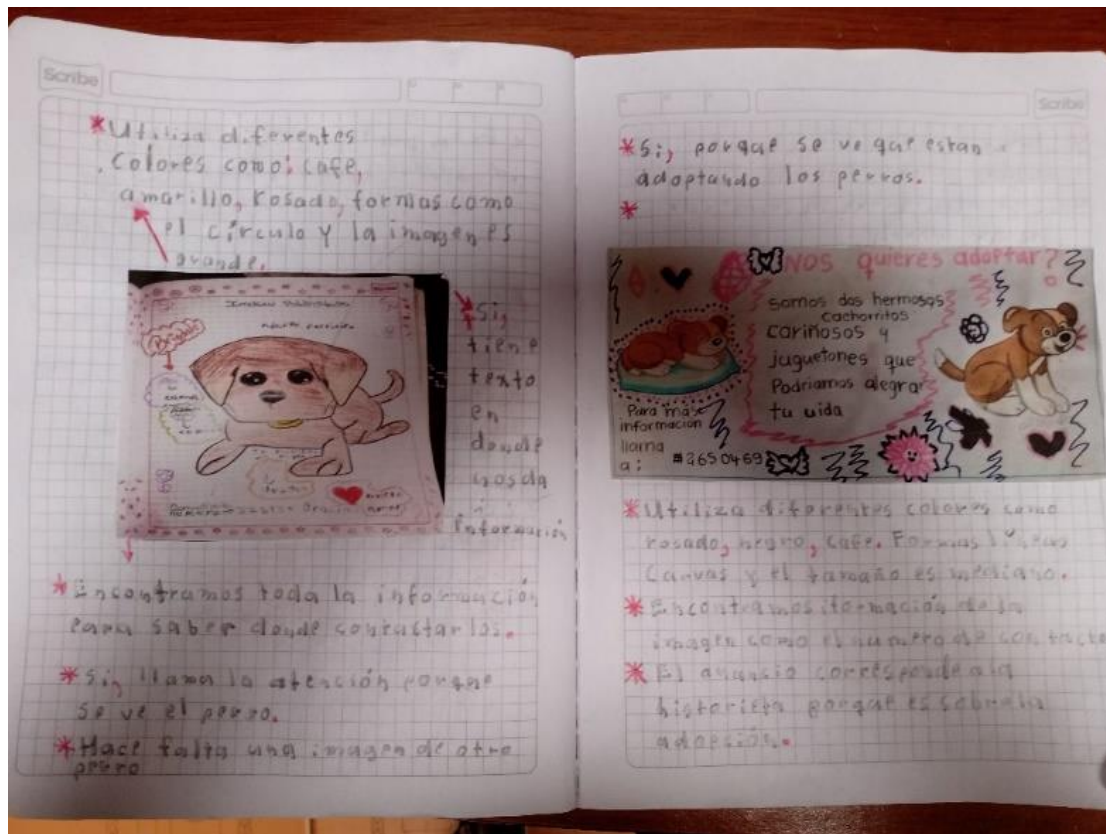 Scribe
*Utiliza diferentes
colores como: cafe,
amarillo, rosado, formas como
el círculo y la imagen es
grande.
*Si,
tiene
texto
en
donde
nos da
información
*Encontramos toda la información
para saber donde contactarlos.
*Si, llama la atención porque
se ve el perro.
*Hace falta una imagen de otro
perro
Scribe
*Si, porque se ve que estan
adoptando los perros.
*
NOS quieres adoptar?
somos dos hermosos
cachorritos
cariñosos y
juguetones que
Podriamos alegrar
tu vida
Para más
información
llama
a: #2650469
*Utiliza diferentes colores como
rosado, negro, cafe. Formas líneas
Curvas y el tamaño es mediano.
*Encontramos iformación de la
imagen como el numero de contacto
*El anuncio corresponde a la
historieta porque es sobre la
adopsión.